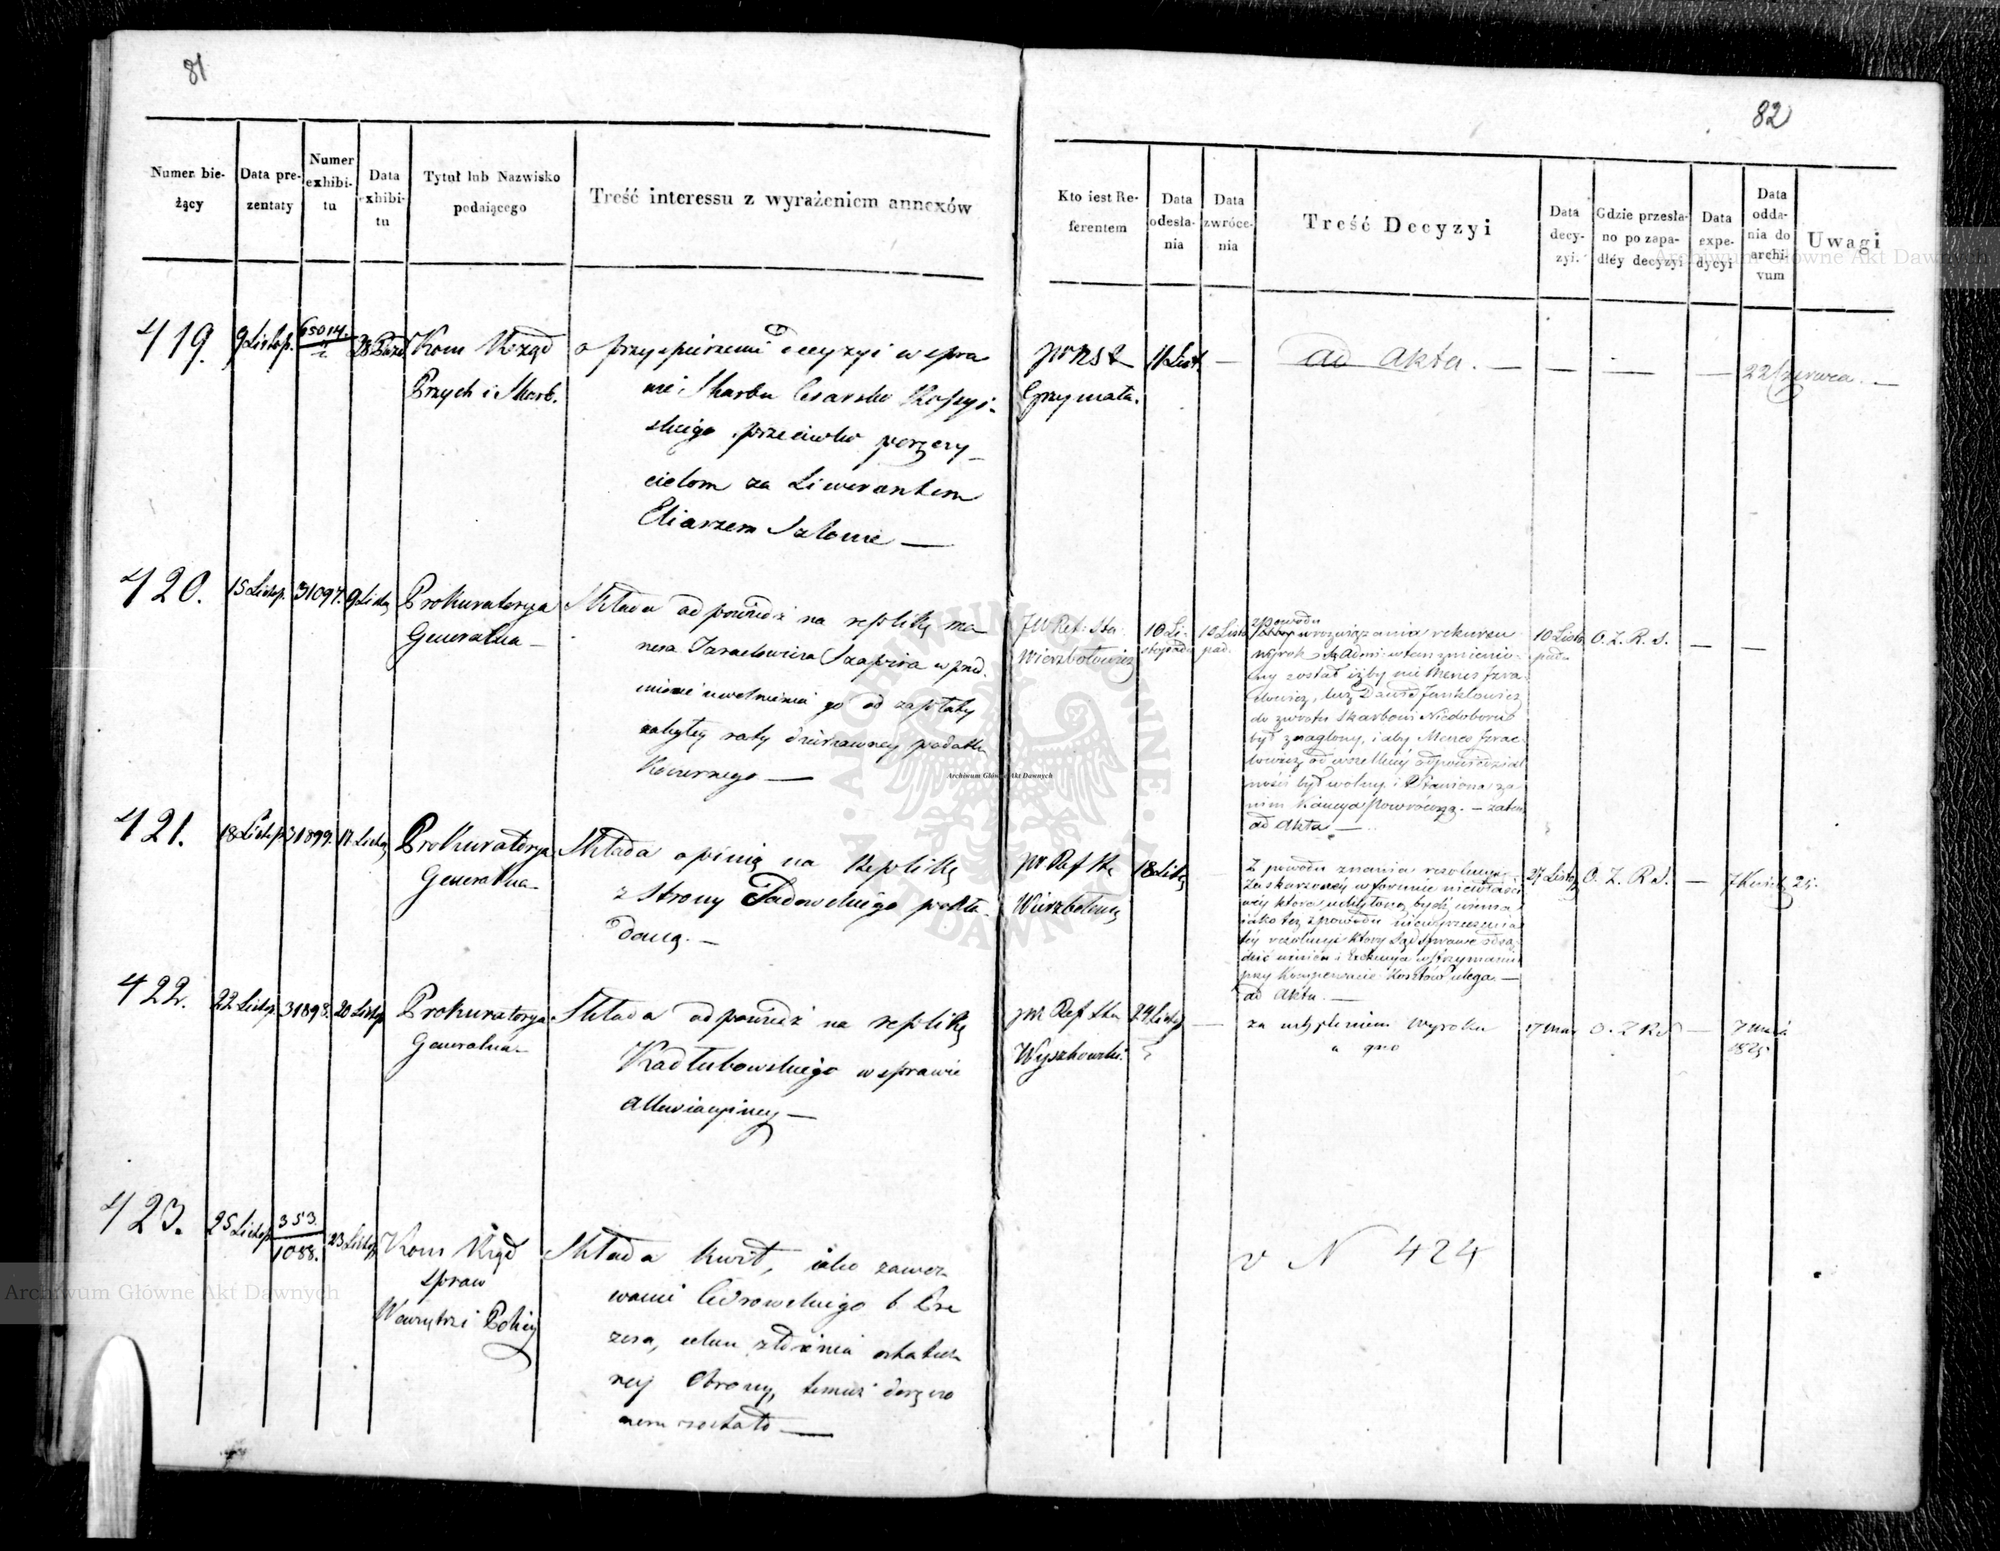 81
Numer bie-
żący
Data pre-
zentaty
Numer
exhibi-
tu
Data
exhibi-
tu
Tytuł lub Nazwisko
podaiącego
Treść interessu z wyrażeniem annexów
419.
9 Listop.
65014.
28 Paźd
Kom Rząd
Przych i Skarb.
o przyspieszenie decyzyi w spra
wie Skarbu Cesarsko Rossyi-
skiego przeciwko poręczy-
cielom za Liwerantem
Eliaszem Szlome —
420.
15 Listop.
31097.
9 Listo
Prokuratorya
Generalna —
Składa odpowiedź na replikę Ma
nesa Izraelowicza Szapira w przed.
miocie uwolnienia go od zapłaty
zaległey raty dzierżawney podatku
Koszernego —
421.
18 Listop
31899.
17 Listop
Prokuratorya
Generalna —
Składa opinię na Replikę
z strony Sadowskiego poda.
daną. —
422.
22 Listop.
31898.
20 Listop
Prokuratorya
Generalna —
Składa odpowiedź na replikę
Kadłubowskiego w sprawie
Allewiacyiney —
423.
25 Listop
353.
1088.
23 Listop
Kom Rząd
spraw
Wewnętrz i Policy
Składa kwit, iako zawez-
wanie Cidrowskiego b. Pre
zesa, celem złożenia ostatecz
ney Obrony, temuż doręczo
nem zostało —
82
Kto iest Re-
ferentem
Data
odesła-
nia
Data
zwróce-
nia
Treść Decyzyi
Data
decy-
zyi.
Gdzie przesła-
no po zapa-
dłéy decyzyi
Data
expe-
dycyi
Data
odda-
nia do
archi-
vum
Uwagi
Grzymała.
11 List.
—
ad Akta. —
—
—
—
22 Czerwca. —
JW Ref. Sta:
Wierzbołowicz
10 Li-
stopada
10 Listo
pad.
z powodu
rozwiązania rekursu
wyrok Są Adm: w tem zmienio-
ny został iżby nie Menes Izra-
elowicz, lecz Dawid Janklowicz
do zwrotu Skarbowi Niedoborów
był znaglony, i aby Menes Izrae-
lowicz od wszelkiey odpowiedzial
ności był wolny i Stawiona za
nim Kaucya powróconą. — zatem
ad Akta —
10 Listo
pada
O. Z. R. S.
—
—
JW Ref Sta
Wierzbołowicz
18 Listo
—
Z powodu
Zaskarżoney w formie niewłaści
wey która uchyloną bydź winna
iako też z powodu
przy Kompensacie Kosztów ulega. —
ad Akta. —
27 Listop
O. Z. R S.
—
25.
JW Ref Sta
Wyszkowski.
24 Listop
—
za uchyleniem Wyroku
a quo
17 Mar
O. Z R S
—
7 March
1825
v N 424
Archiwum Główne Akt Dawnych
Archiwum Główne Akt Dawnych
Archiwum Główne Akt Dawnych
ARCHIWUM GŁÓWNE AKT DAWNYCH